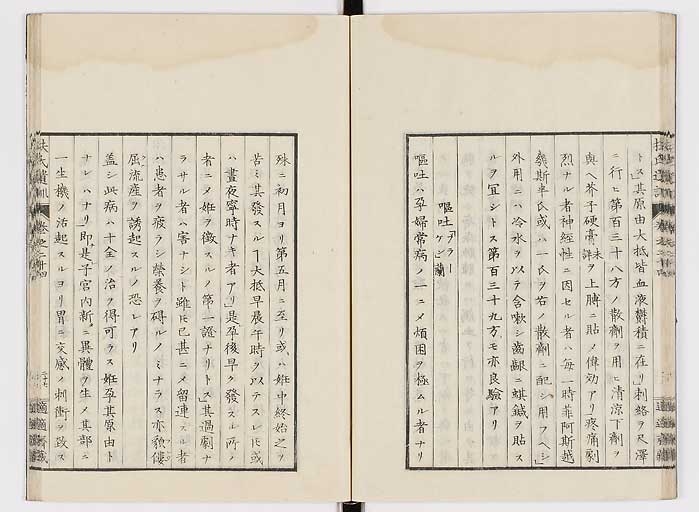 トス」其原由大抵皆血液欝積ニ在リ」刺絡ヲ尺澤
ニ行ヒ第百三十八方ノ散劑ヲ用ヒ清涼下劑ヲ
與ヘ芥子硬膏未詳ヲ上膊ニ貼メ偉効アリ疼痛劇
烈ナル者神經性ニ因セル者ハ毎一時菲阿斯越
幾斯半氏或ハ一氏ヲ右ノ散劑ニ配シ用フヘシ」
外用ニハ冷水ヲ以テ含嗽シ齒齦ニ蜞鍼ヲ貼ス
ルヲ宜シトス第百三十九方モ亦良驗アリ
嘔吐
嘔吐ハ孕婦常病ノ一ニメ煩困ヲ極ムル者ナリ
殊ニ初月ヨリ第五月ニ至リ或ハ妊中終始之ヲ
苦ミ其發スルヿ大抵早晨午時ヲ以テスレ𪜈或
ハ晝夜寧時ナキ者アリ」是孕後早ク發スル所ノ
者ニメ妊ヲ徴スルノ第一證ナリトス」其過劇ナ
ラサル者ハ害ナシト雖𪜈已甚ニメ留連スル者
ハ患者ヲ疲ラシ榮養ヲ碍ルノミナラス亦貌僂
屈流産ヲ誘起スルノ恐レアリ
蓋シ此病ハ十全ノ治ヲ得可ラス妊孕其原由ト
ナレハナリ」即是子宮内新ニ異體ヲ生メ其部ニ
一生機ノ活起スルヨリ胃ニ交感ノ刺衝ヲ致ス
扶氏遺訓 卷之二十四
適適齋藏